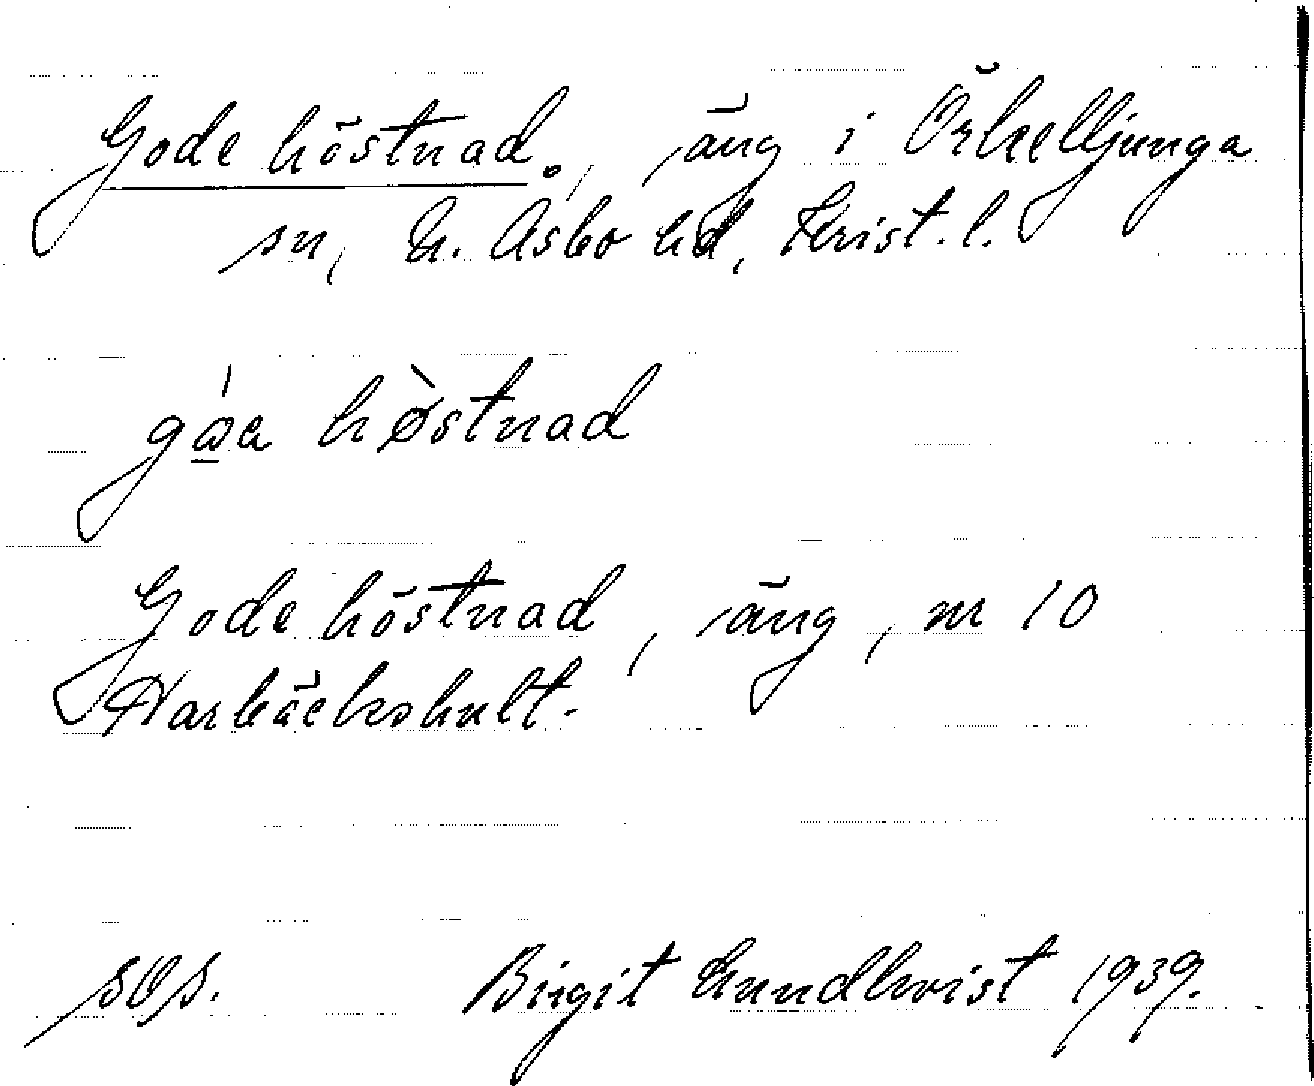 Gode höstnad., äng i Örkelljunga
sn, N. Åsbo hd, Krist. l.
gɷ́a hø̀stnad
Gode höstnad, äng, nr 10
Harbäckshult.
Birgit Lundkvist 1939.